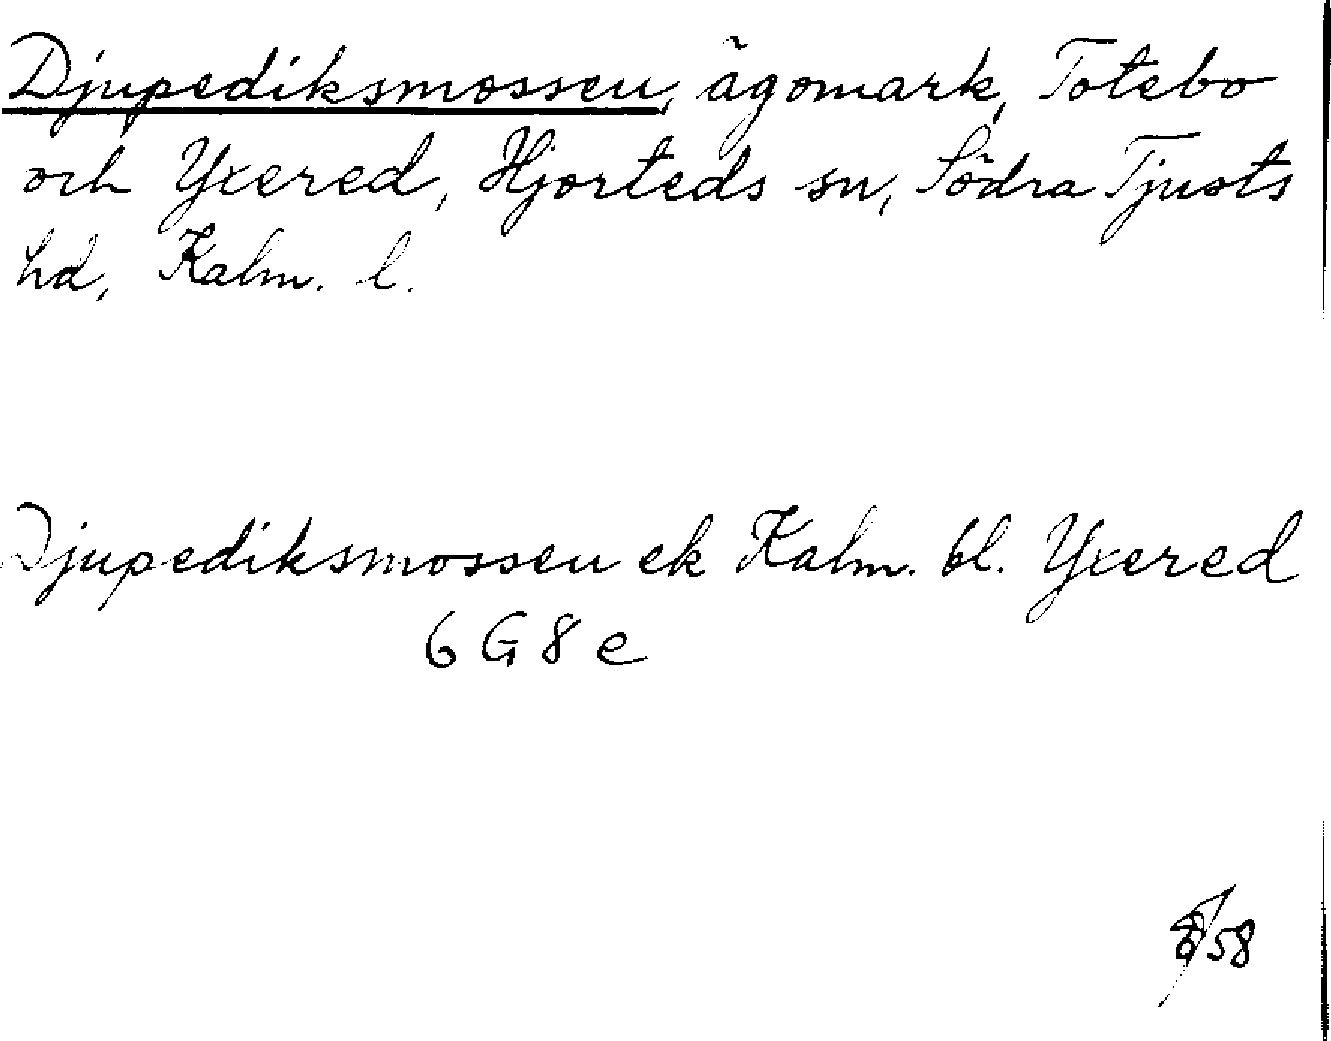 Djupediksmossen, ägomark, Totebo
och Yxered, Hjorteds sn, Södra Tjusts
hd, Kalm. l.
Djupediksmossen ek Kalm. bl. Yxered
6 G 8 e
58